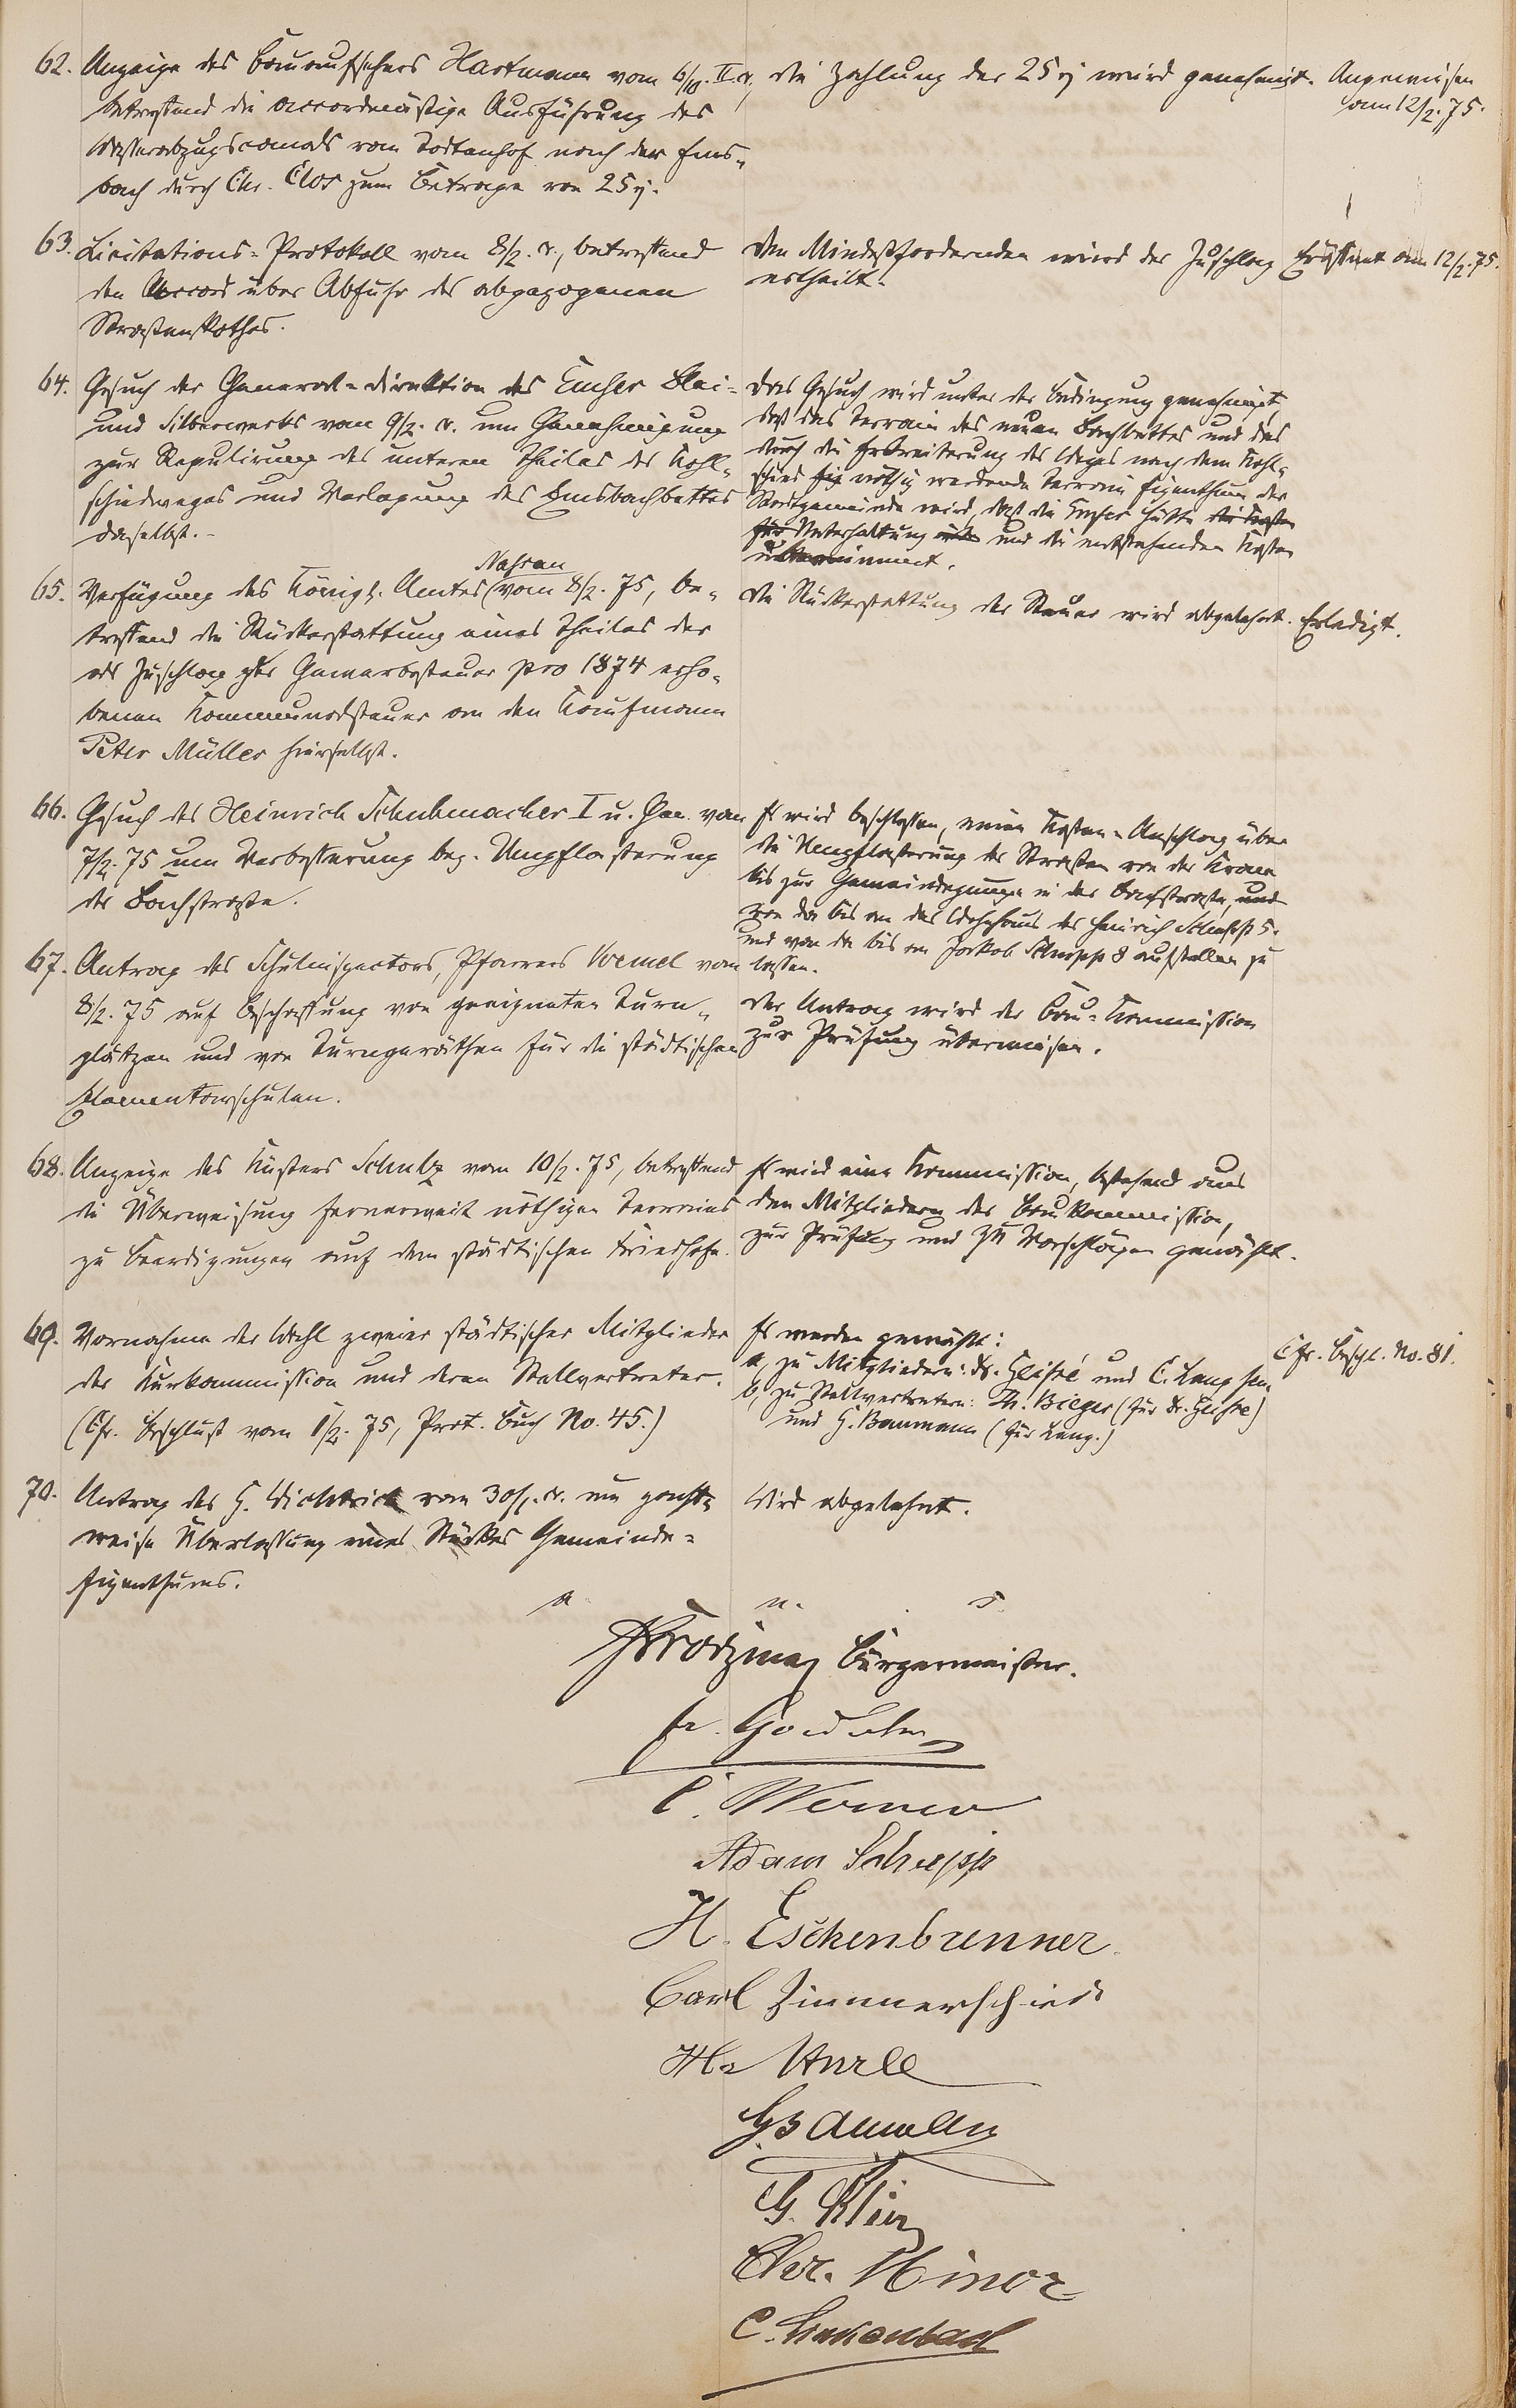 62. Anzeige des Bauaufsehers Hartmann vom
betreffend die accordmäßige Ausführung des
Wasserabzugscanals vom Todtenhof nach der Ems-
bach durch Chr. Clos zum Betrage von 25
die Zahlung der 25 wird genehmigt.
Angewiesen
am 12/2. 75.
63. Licitations-Protokoll vom 8/2. cr., betreffend
den Accord über Abfuhr des abgezogenen
Straßenkothes.
Dem Mindestfordernden wird der Zuschlag
ertheilt.
Eröffnet am 12/2. 75.
64. Gesuch der General-Direktion des Emser Blei-
und Silberwerks vom 9/2. cr. um Genehmigung
zur Regulirung des unteren Theiles des Kohl-
schiedweges und Verlegung des Emsbachbettes
daselbst.-
Das Gesuch wird unter der Bedingung genehmigt,
daß das Terrain des neuen Bachbettes und das
durch die Erbreiterung des Weges nach dem Kohl-
schied nöthig werdende Terrain Eigenthum der
Stadtgemeinde wird, daß die Emser Hütte die Kosten
für Unterhaltung und die entstehenden Kosten
übernimmt.
Nassau
65. Verfügung des Königl. Amtes (vom 8/2. 75, be-
treffend die Rückerstattung eines Theiles der
als Zuschlag zur Gewerbesteuer pro 1874 erho-
benen Kommunalsteuer an den Kaufmann
Peter Müller hierselbst.
Die Rückerstattung der Steuer wird abgelehnt.
Erledigt.
66. Gesuch des Heinrich Schuhmacher I u. Gen. vom
7/2. 75 um Verbesserung bez. Umpflasterung
der Bachstraße.
Es wird beschlossen, einen Kosten-Anschlag über
die Umpflasterung der Straßen von der Krone
bis zur Gemeindepumpe in der Bachstraße, und
von da bis an das Wohnhaus des Heinrich Schupp 5.
und von da bis an Jackob Schupp 8 aufstellen zu
lassen.
67. Antrag des Schulinspectors, Pfarrers Vomel vom
8/2. 75 auf Beschaffung von geeigneten Turn-
plätzen und von Turngeräthen für die städtischen
Elementarschulen.
Der Antrag wird der Bau-Kommission
zur Prüfung überwiesen.
68. Anzeige des Küsters Schulz vom 10/2. 75, betreffend
die Überweisung fernerweit nöthigen Terrains
zu Beerdigungen auf dem städtischen Friedhofe.
Es wird eine Kommission, bestehend aus
den Mitgliedern der Baukommission,
zur Prüfung und zu Vorschlägen gewählt.
69. Vornahme der Wahl zweier städtischer Mitglieder
der Kurkommission und deren Stellvertreter.
(Cfr. Beschluß vom 1/2. 75, Prot. Buch No. 45.)
Es werden gewählt:
a, zu Mitgliedern: Dr. und C. Lang sen.
b, zu Stellvertretern: Th. Bieger (für Dr.
und G. Baumann (für Lang.)
Cfr. Beschl. No. 81.
70. Antrag des G. vom 30/1. cr. um pacht-
weise Überlassung eines Stückes Gemeinde-
Eigenthums.
Wird abgelehnt.
a. u. s.
Bürgermeister.
C. Werner
Adam Schupp
H. Eschenbrenner
Carl Zimmerschied
G. Klein
Chr. Minor
C. Linkenbach